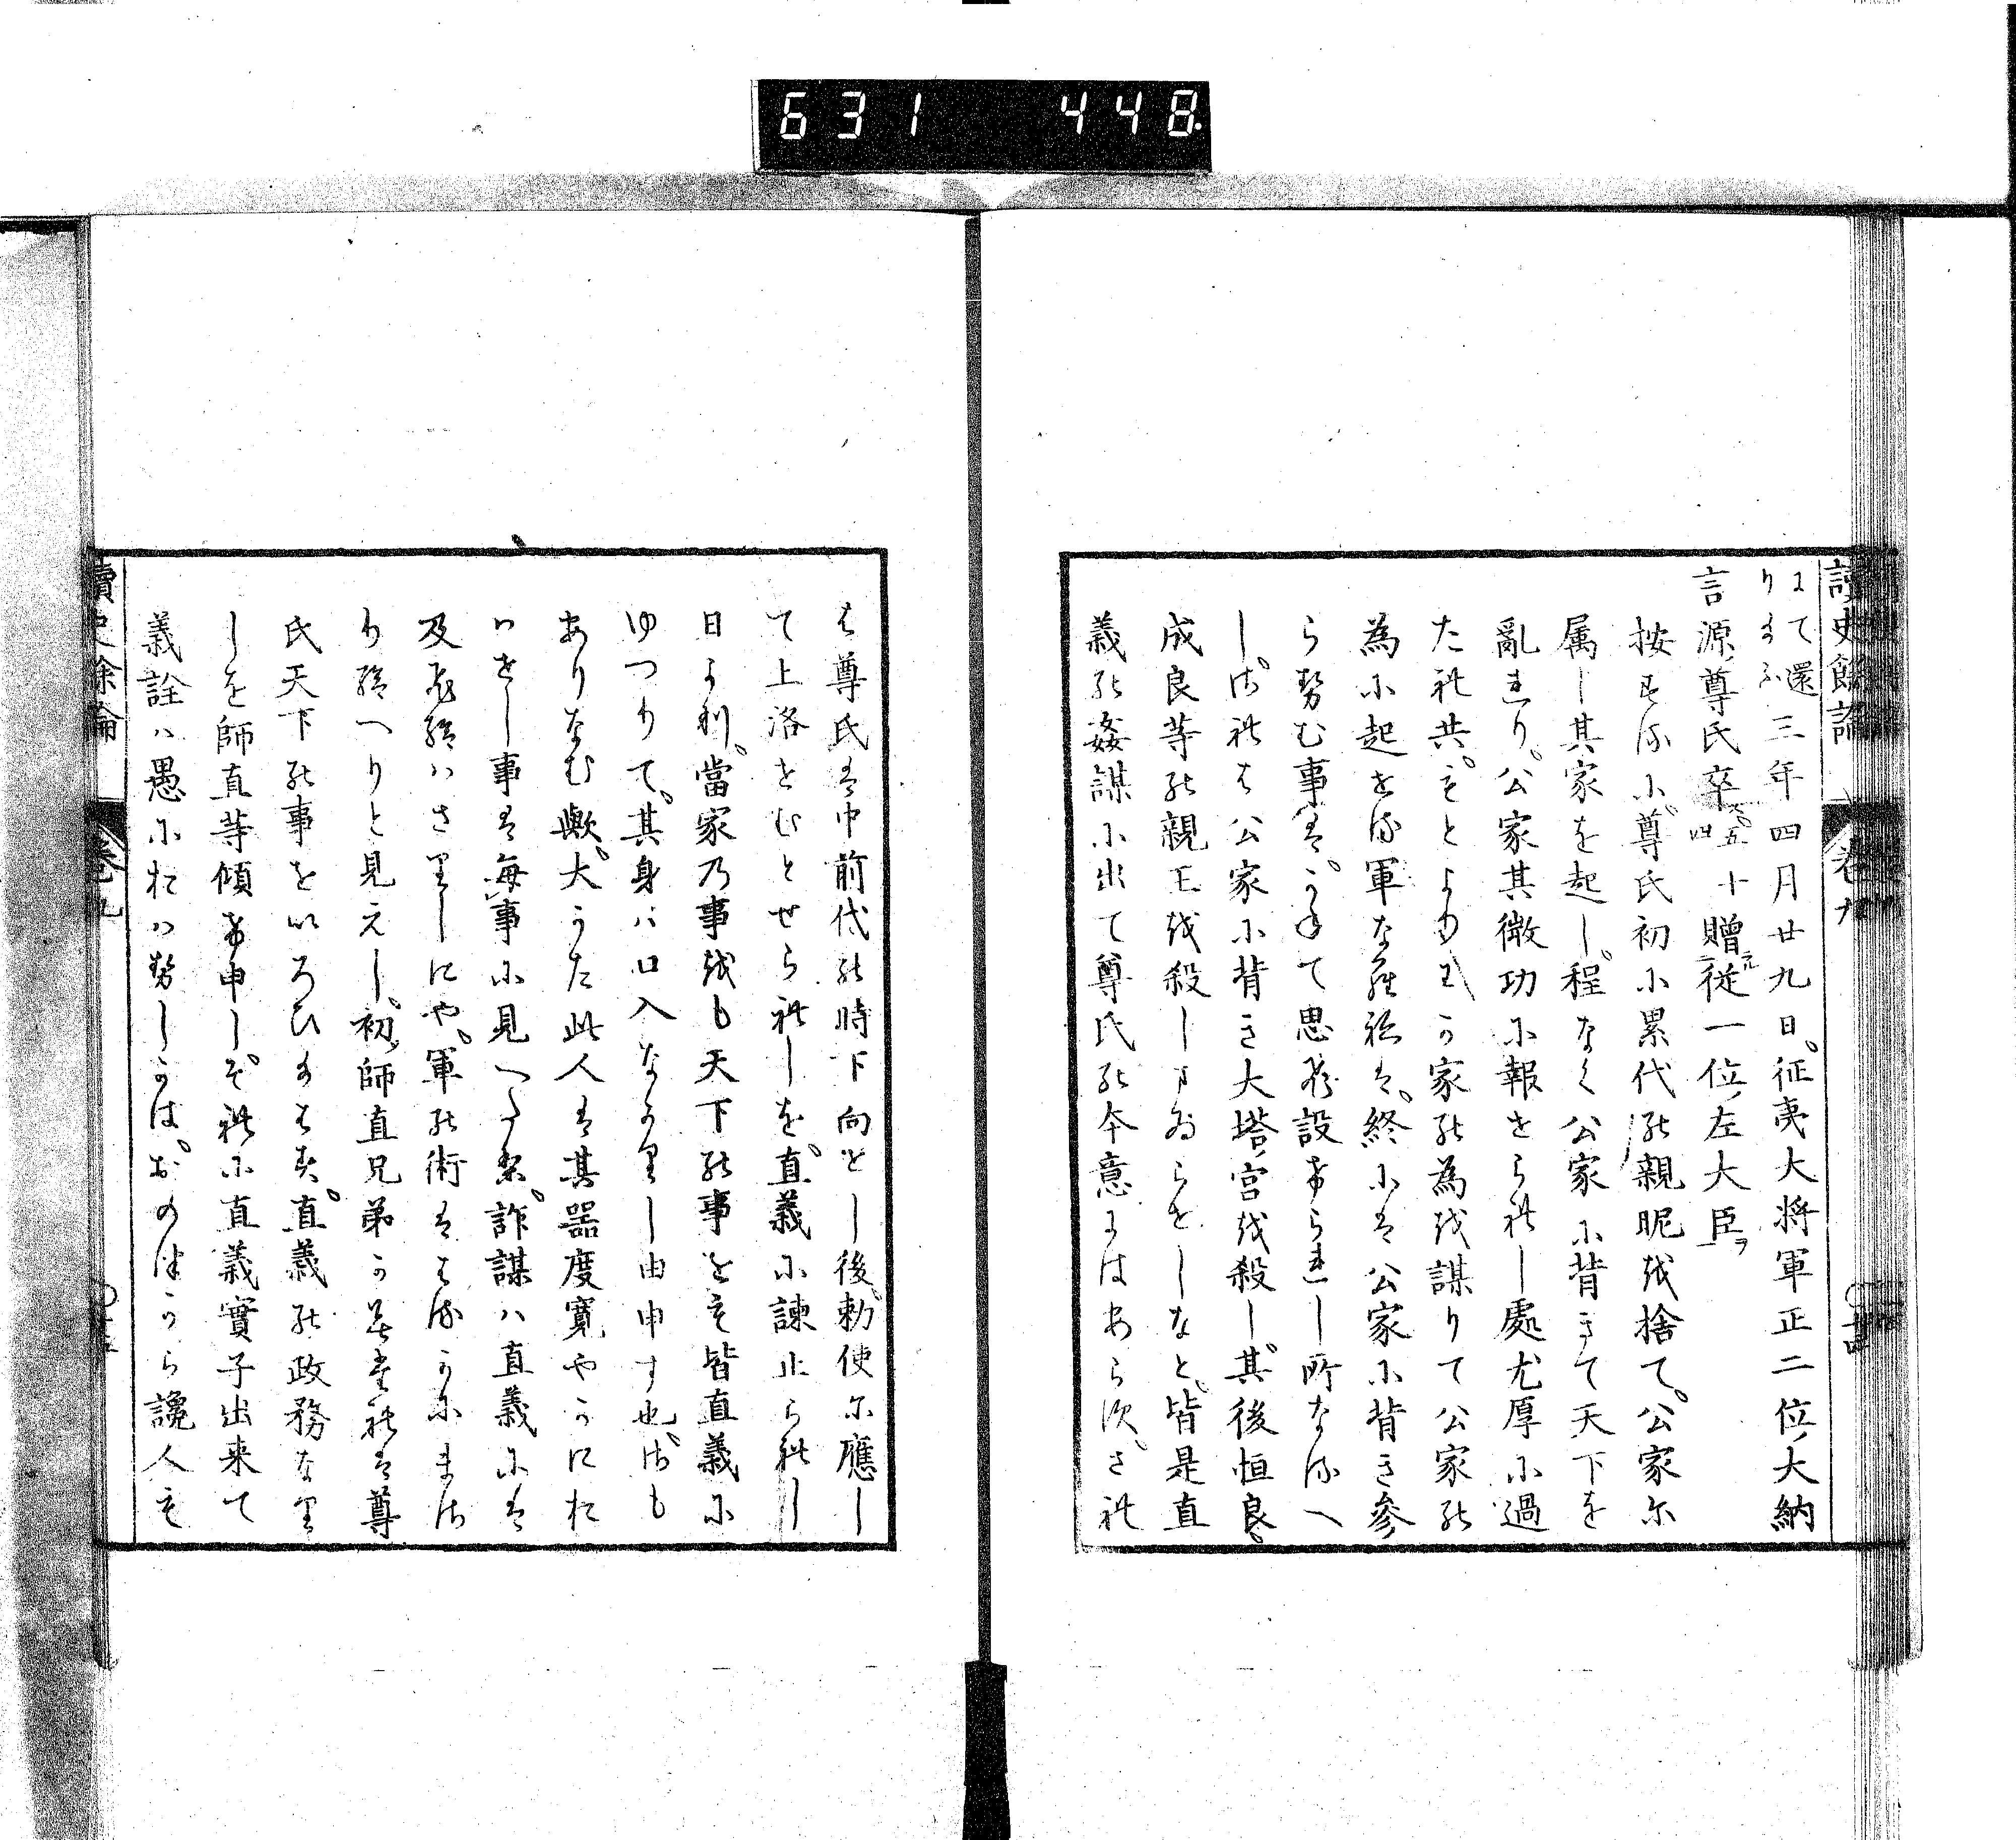 631 448
讀史餘論 卷九 ○廿四
にて還
りゐふ
三年四月廿九日征夷大将軍正二位大納
言源尊氏卒五十四贈従一位左大臣
按するに尊氏初に累代の親昵を捨て公家に
属し其家を起し程なく公家に背きて天下を
亂れり公家其微功に報せられし處尤厚に過
たれ共もとより己か家の為を謀りて公家の
為に起せる軍ならねは終には公家に背き参
らせむ事はかねて思ひ設けられし所なるへ
しされは公家に背き大塔宮を殺し其後恒良
成良等の親王を殺しまゐらせしなと皆是直
義の姦謀に出て尊氏の本意にはあらすされ
は尊氏は中前代の時下向をし後勅使に應し
て上洛せむとせられしを直義に諫止られし
日より當家の事をも天下の事をも皆直義に
ゆつりて其身は口入なかりし由申す也されも
ありなむ歟大かた此人は其器度寛やかにお
はせし事は毎事に見へたり詐謀は直義には
及ひ給はさりしにや軍の術ははるかにまさ
り給へりと見えし初師直兄弟か
氏天下の事をいろひ給はす直義の政務なり
しを師直等傾け申しそれに直義實子出来て
義詮は愚におはせしかはおのつから讒人も
讀史餘論 卷九